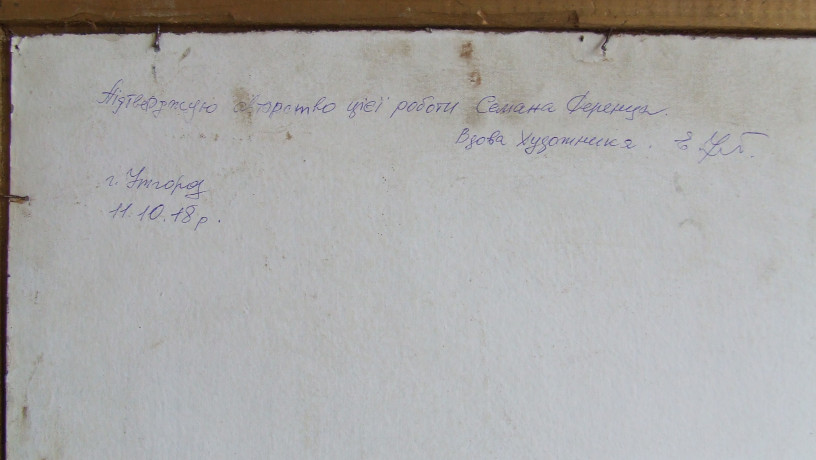 Підтверджую авторство цієї роботи Семана Ференца.
Вдова художника.
г. Ужгород
11.10.18р.